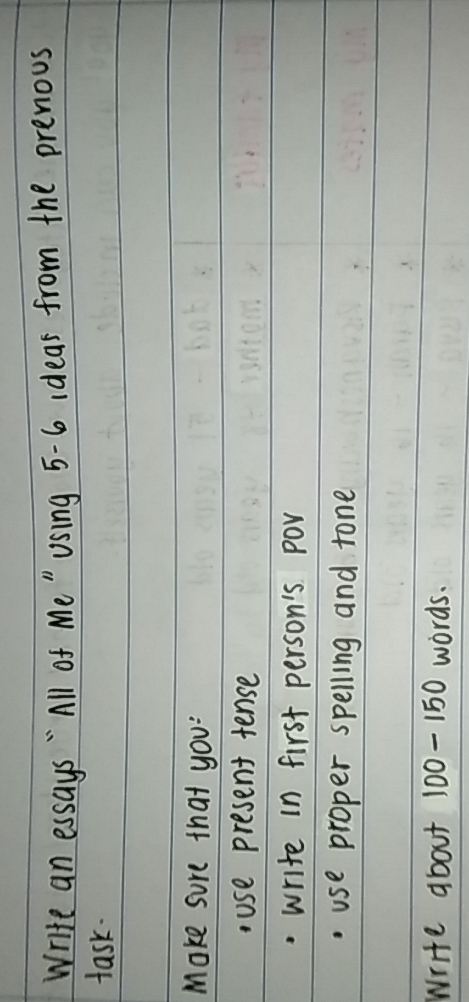 Write an essays "All of Me" using 5-6 ideas from the prenous
task.
Make sure that you:
• use present tense
• write in first person's pov
• use proper spelling and tone
Write about 100 - 150 words.